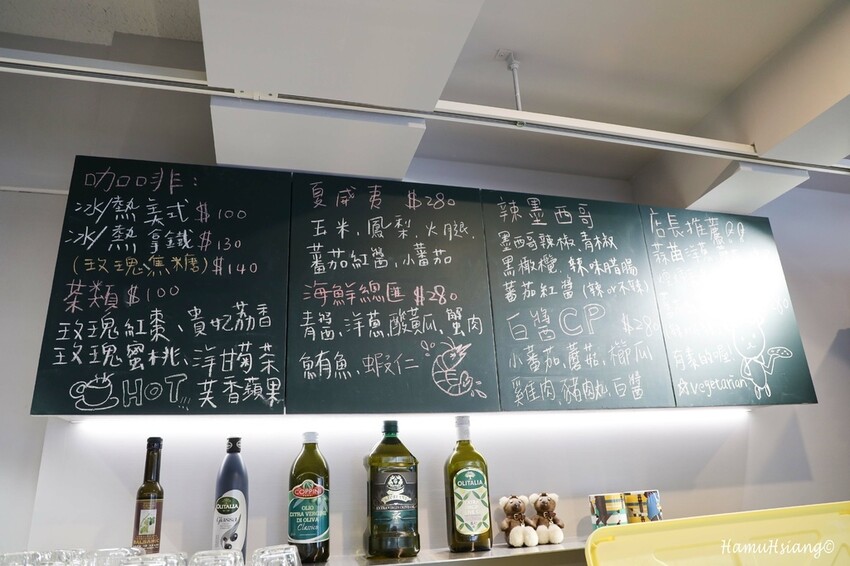 咖啡:
冰/熱美式 $100
冰/熱拿鐵 $130
(玫瑰焦糖) $140
茶類 $100
玫瑰紅棗、貴妃荔香
玫瑰蜜桃、洋甘菊茶
HOT 芙香蘋果
夏威夷 $280
玉米、鳳梨、火腿
蕃茄紅醬、小蕃茄
海鮮總匯 $280
青醬、洋蔥、酸黃瓜、蟹肉
鮪魚、蝦仁
辣墨西哥
墨西哥辣椒、青椒
黑橄欖、辣味腊腸
蕃茄紅醬(辣or不辣)
白醬CP $280
小蕃茄、蘑菇、櫛瓜
雞肉、豬肉丸、白醬
店長推薦
☆vegetarian
OLITALIA
COPPINI
OLIO
EXTRA VERGINE
DI OLIVA
Classico
OLITALIA
HamuHsiang©